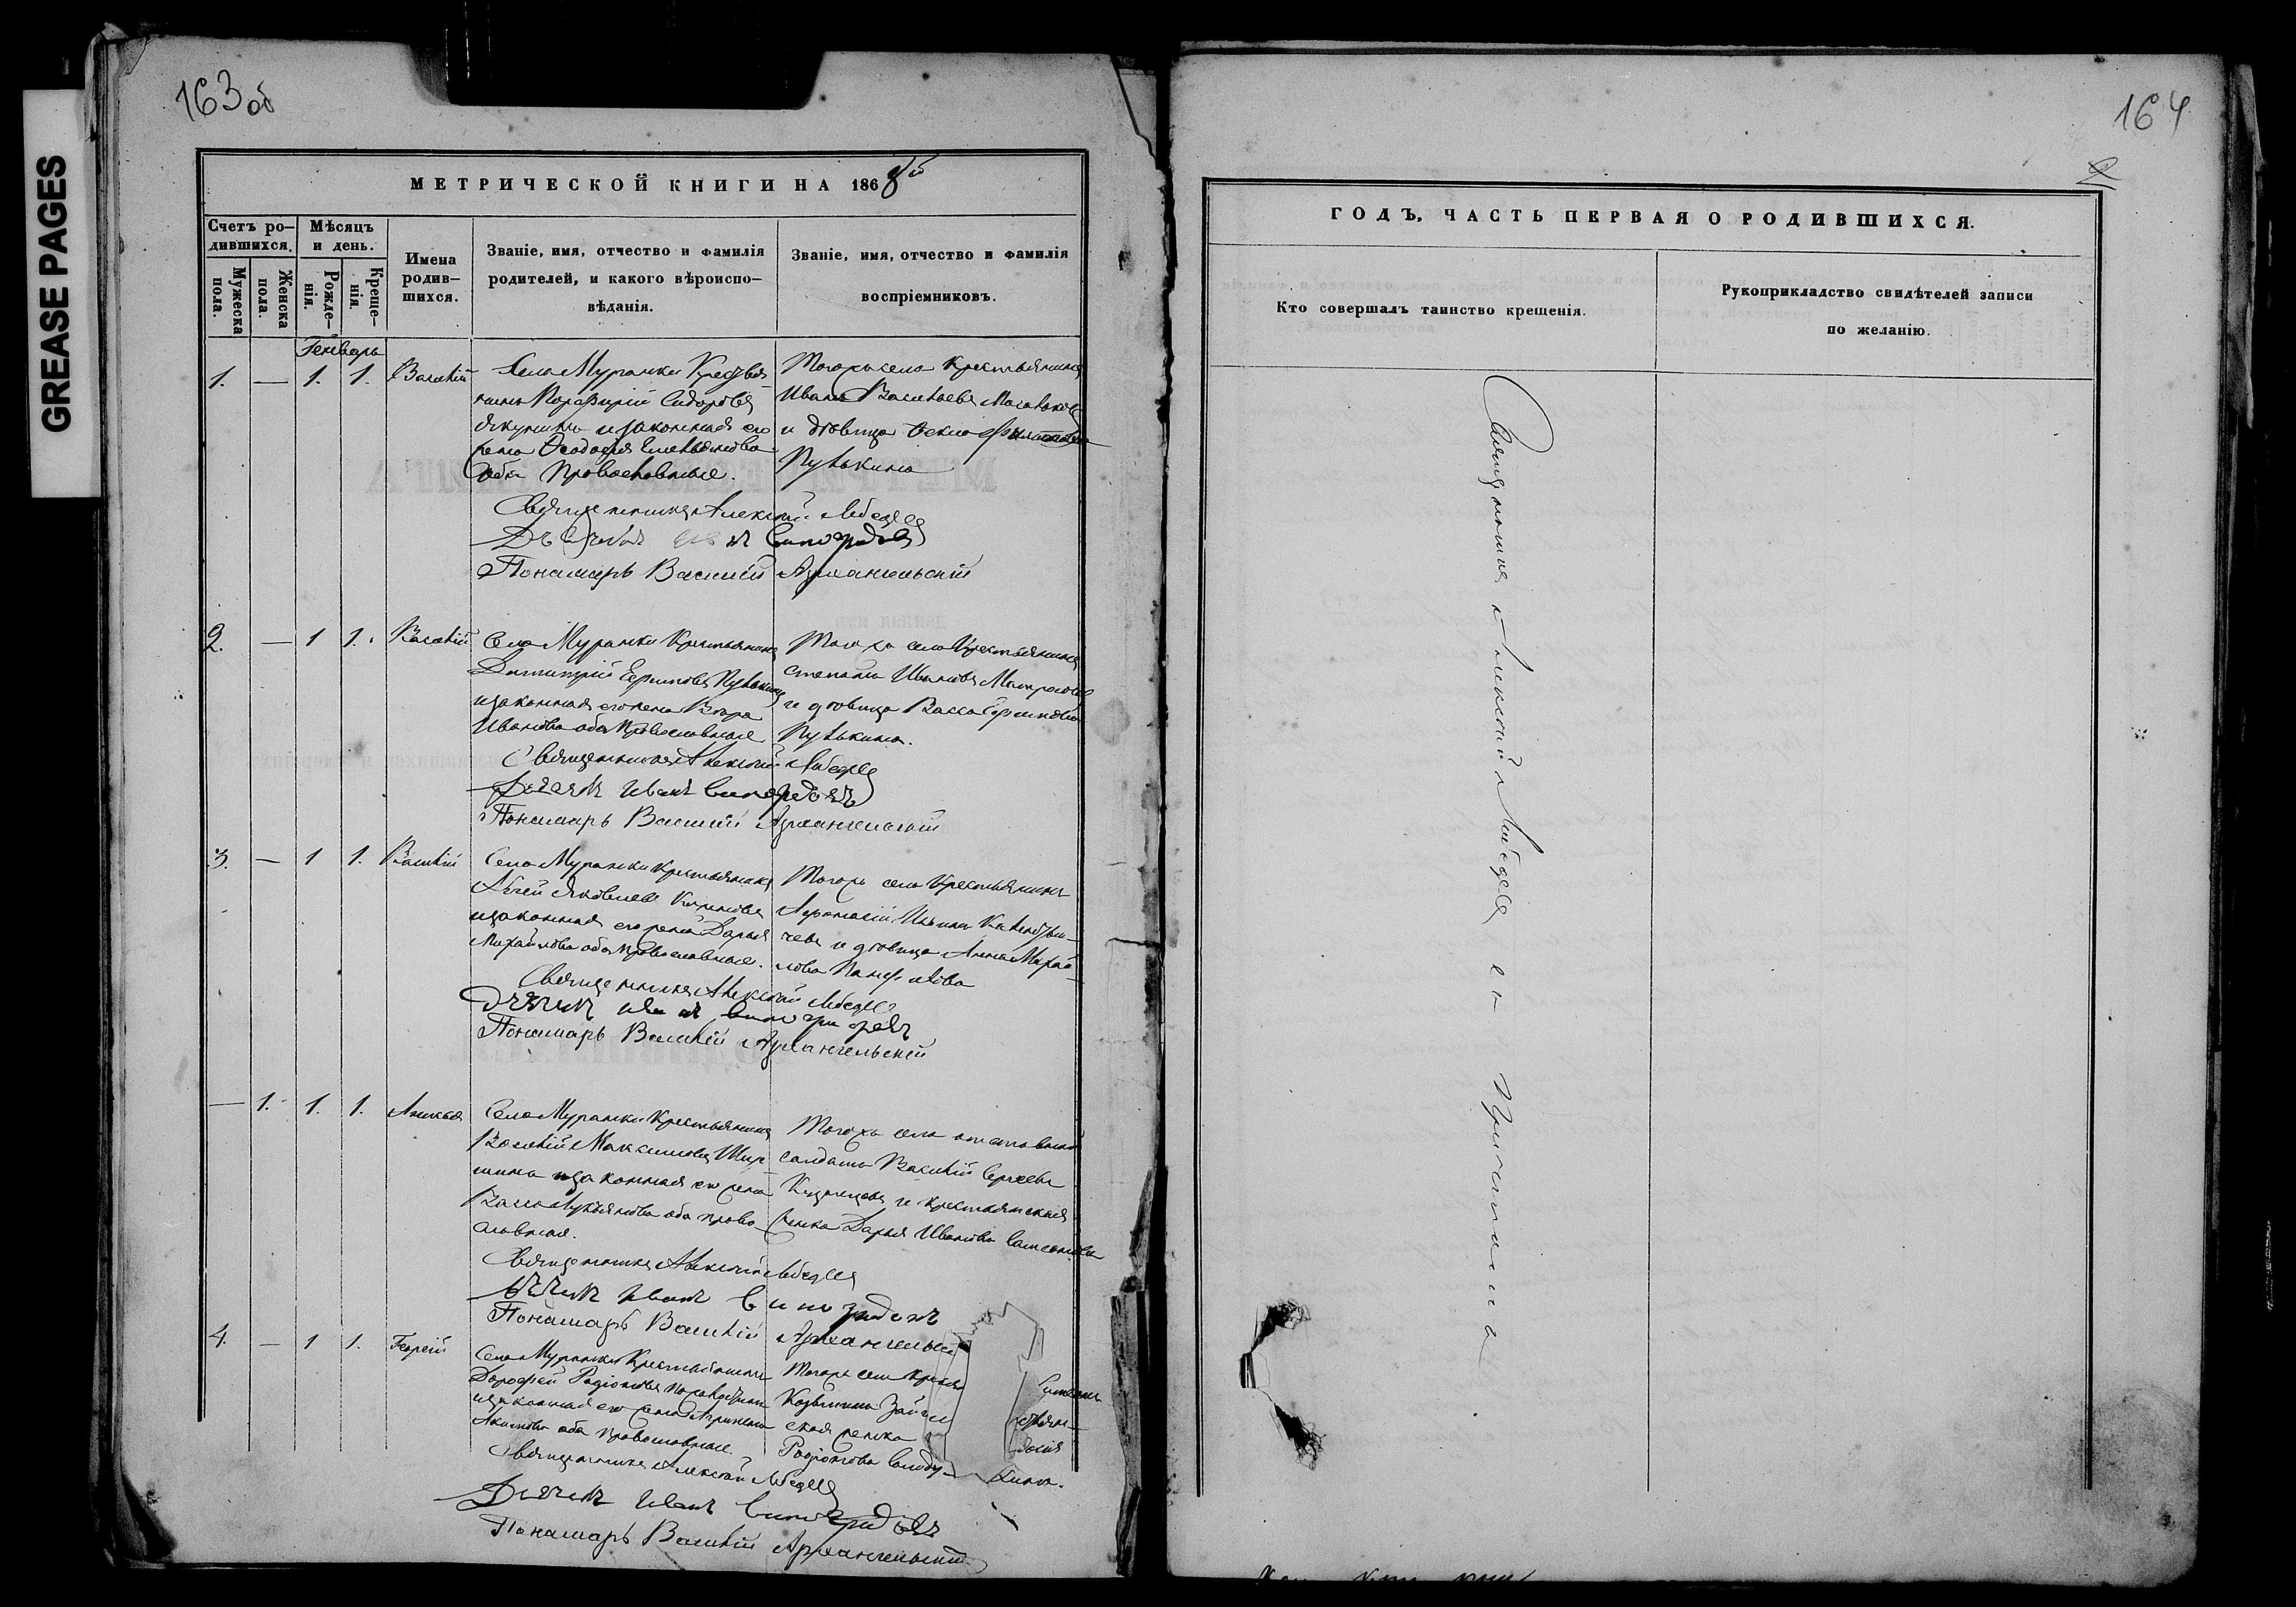 GREASE PAGES
163 об
МЕТРИЧЕСКОЙ КНИГИ НА 1868й
Счетъ ро-
дившихся.
Мѣсяцъ
и день.
Имена
родив-
шихся.
Званіе, имя, отчество и фамилія
родителей, и какого вѣроиспо-
вѣданія.
Званіе, имя, отчество и фамилія
воспріемниковъ.
Мужеска
пола.
Женска
пола.
Рожде-
нія.
Креще-
нія.
Генварь
1. — 1. 1. Василій
Села Муранки Крестья
нинъ Порфирій Сидоровъ
Якунинъ и законная его
жена Ѳеодосія Емельянова
оба Православные.
Тогожъ села Крестьянинъ
Иванъ Васильевъ
и дѣвица Ѳекла
Пулькина
Священникъ Алексѣй Лебедевъ
Дьячекъ Иванъ Виноградовъ
Пономарь Василій Архангельскій
2. — 1 1. Василій
Села Муранки Крестьянинъ
Димитрій Ефимовъ Пулькинъ
и законная его жена Вѣра
Иванова оба Православные
Тогожъ села Крестьянинъ
Степанъ Ивановъ
и дѣвица Васса Ефимова
Пулькина.
Священникъ Алексѣй Лебедевъ
Дьячекъ Иванъ Виноградовъ
Пономарь Василій Архангельскій
3. — 1 1. Василій
Села Муранки Крестьянинъ
Авдей Яковлевъ
и законная его жена Дарья
Михайлова оба Православные.
Тогожъ села Крестьянинъ
Афонасій Ильинъ
чевъ и дѣвица Анна Михай
лова Панфилова
Священникъ Алексѣй Лебедевъ
Дьячекъ Иванъ Виноградовъ
Пономарь Василій Архангельскій
— 1. 1. 1.
Села Муранки Крестьянинъ
Василій Максимовъ Шир
шинъ и законная его жена
Васса Лукьянова оба право
славные.
Тогожъ села отставной
солдатъ Василій Сергеевъ
Кузнецовъ и крестьянская
женка Дарья Иванова Самсонова
Священникъ Алексѣй Лебедевъ
Дьячекъ Иванъ Виноградовъ
Пономарь Василій Архангельскій
4. — 1 1. Георгій
Села Муранки Крестьянинъ
Дорофей Родіоновъ
и законная его жена Агрипина
Акимова оба Православные.
Тогожъ села Крестья
Козьминъ
ская женка
Родіонова
Священникъ Алексѣй Лебедевъ
Дьячекъ Иванъ Виноградовъ
Пономарь Василій Архангельскій
164
2
ГОДЪ, ЧАСТЬ ПЕРВАЯ О РОДИВШИХСЯ.
Кто совершалъ таинство крещенія.
Рукоприкладство свидѣтелей записи
по желанію.
Священникъ Алексѣй Лебедевъ съ Причтомъ